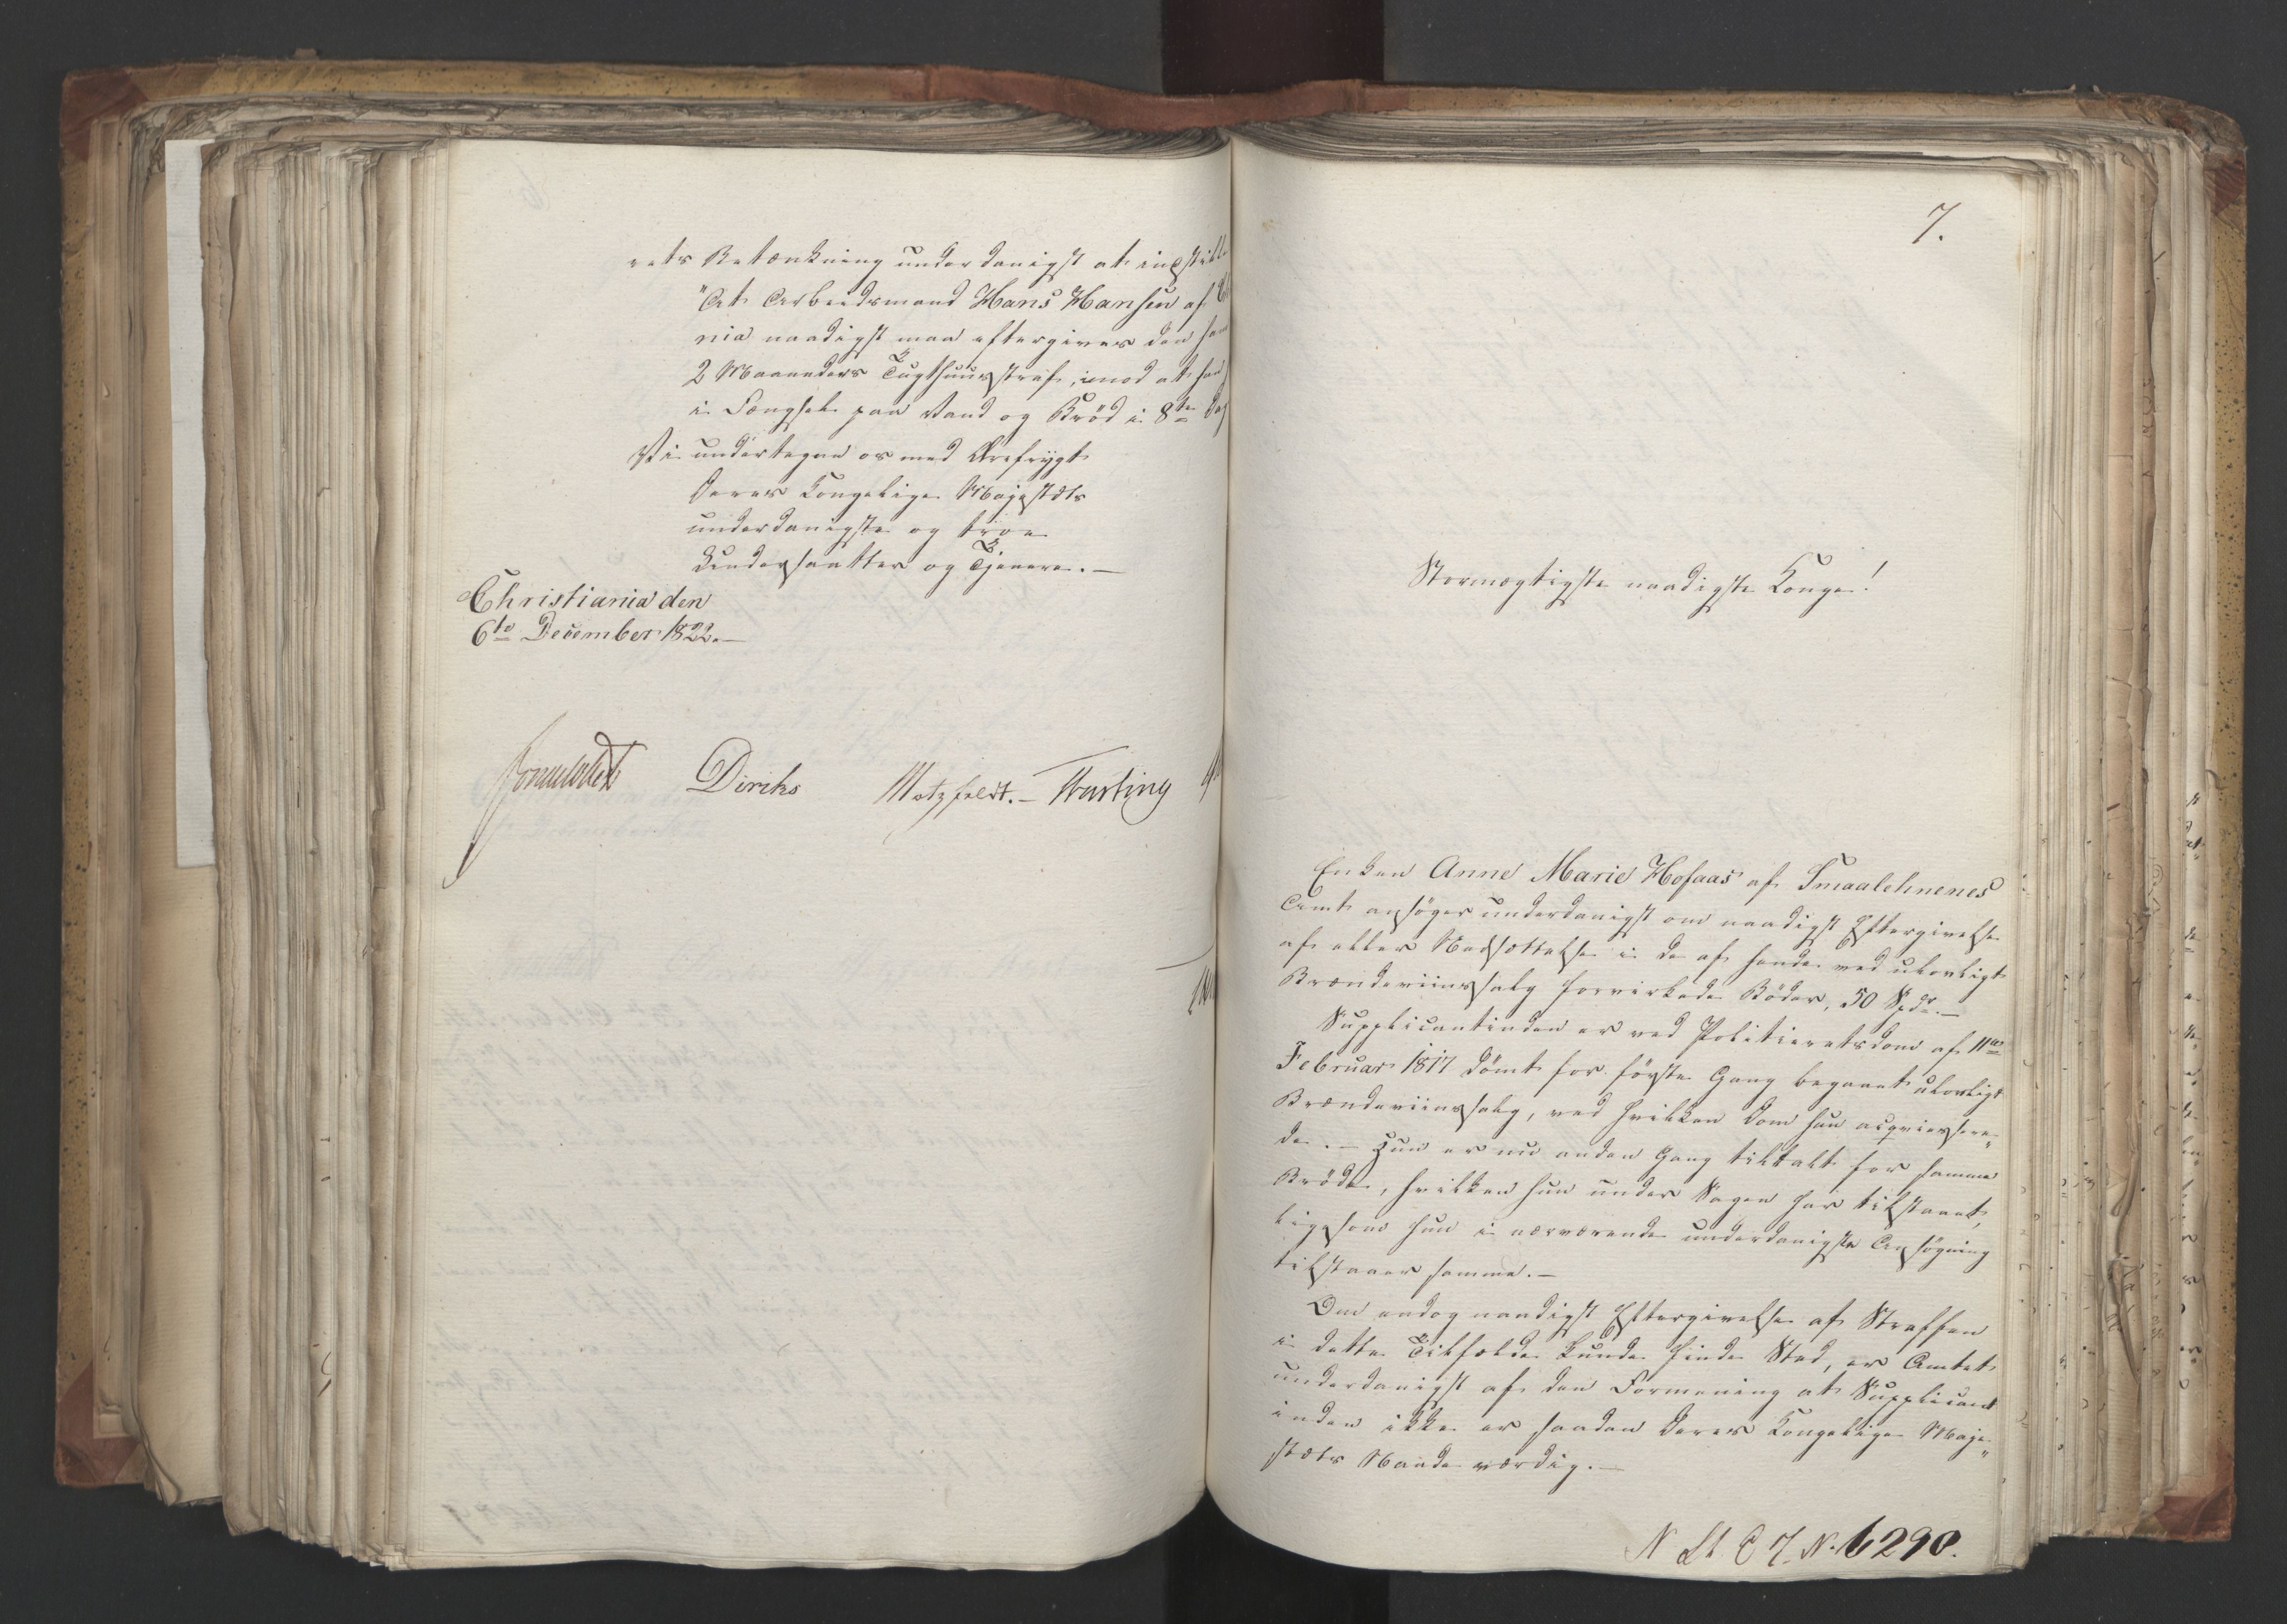 rets Betænkning underdanigst at indstille
"At Arbeidsmand Hans Hansen af
nia naadigst maa eftergives den
2 Maaneders Tugthuusstraf, imod at han
i Fængsel paa Vand og Brød i 8te
Vi undertegne os med Ærefrygt
Deres Kongelige Majestæts
underdanigste og troe
Undersaatter og Tjenere. –
Christiania den
6te December 1822. –
Sommerhielm Diriks Motzfeldt. – Fasting
7.
Stormægtigste naadigste Konge!
Enken Anne Marie Hofaas af Smaalehnenes
Amt ansøger underdanigst om naadigst Eftergivelse
af eller Nedsættelse i de af hende ved ulovligt
Brændeviinssalg forvirkede Bøder, 50 Spdr. –
Supplicantinden er ved Politieretsdom af 11te
Februar 1817 dømt for første Gang begaaet ulovligt
Brændeviinssalg, ved hvilken Dom hun acqviessere„
de. – Hun er nu anden Gang tiltalt for samme
Brøde, hvilken hun under Sagen har tilstaaet,
ligesom hun i nærværende underdanigste Ansøgning
tilstaaer samme. –
Om endog naadigst Eftergivelse af Straffen
i dette Tilfælde kunde finde Sted, er Amtet
underdanigst af den Formening at Supplicant
inden ikke er saadan Deres Kongelige Maje„
stæts Naade værdig. –
N Lt. C 7. N. 6290.